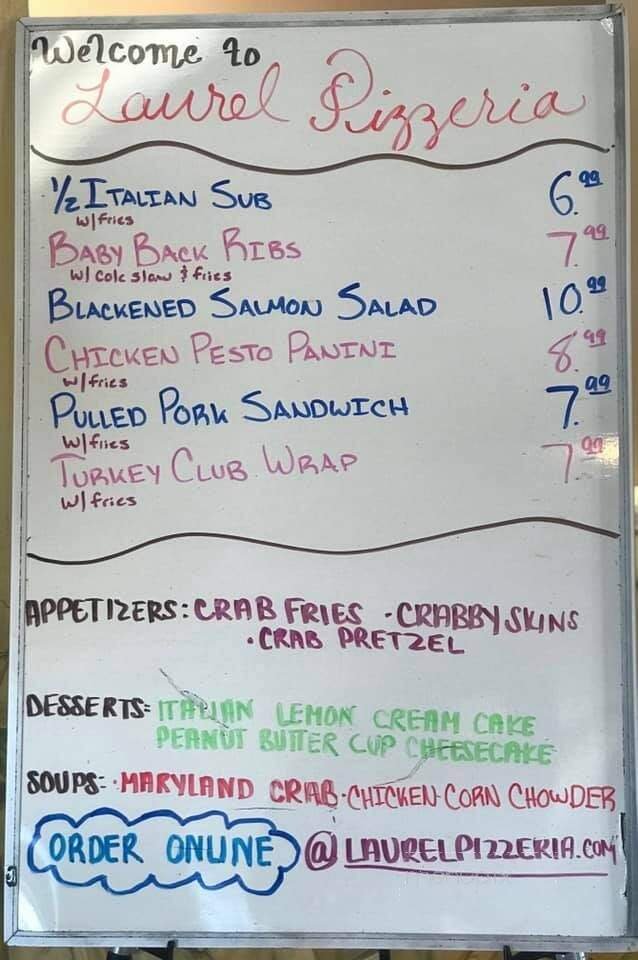 Welcome to
Laurel Pizzeria
½ ITALIAN SUB 6.99
w/fries
BABY BACK RIBS 7.99
w/ Cole slaw & fries
BLACKENED SALMON SALAD 10.99
CHICKEN PESTO PANINI 8.99
w/fries
PULLED PORK SANDWICH 7.99
w/fries
TURKEY CLUB WRAP 7.99
w/ fries
APPETIZERS: CRAB FRIES • CRABBY SKINS
• CRAB PRETZEL
DESSERTS: ITALIAN LEMON CREAM CAKE
PEANUT BUTTER CUP CHEESECAKE
SOUPS: • MARYLAND CRAB • CHICKEN CORN CHOWDER
ORDER ONLINE @ LAURELPIZZERIA.COM